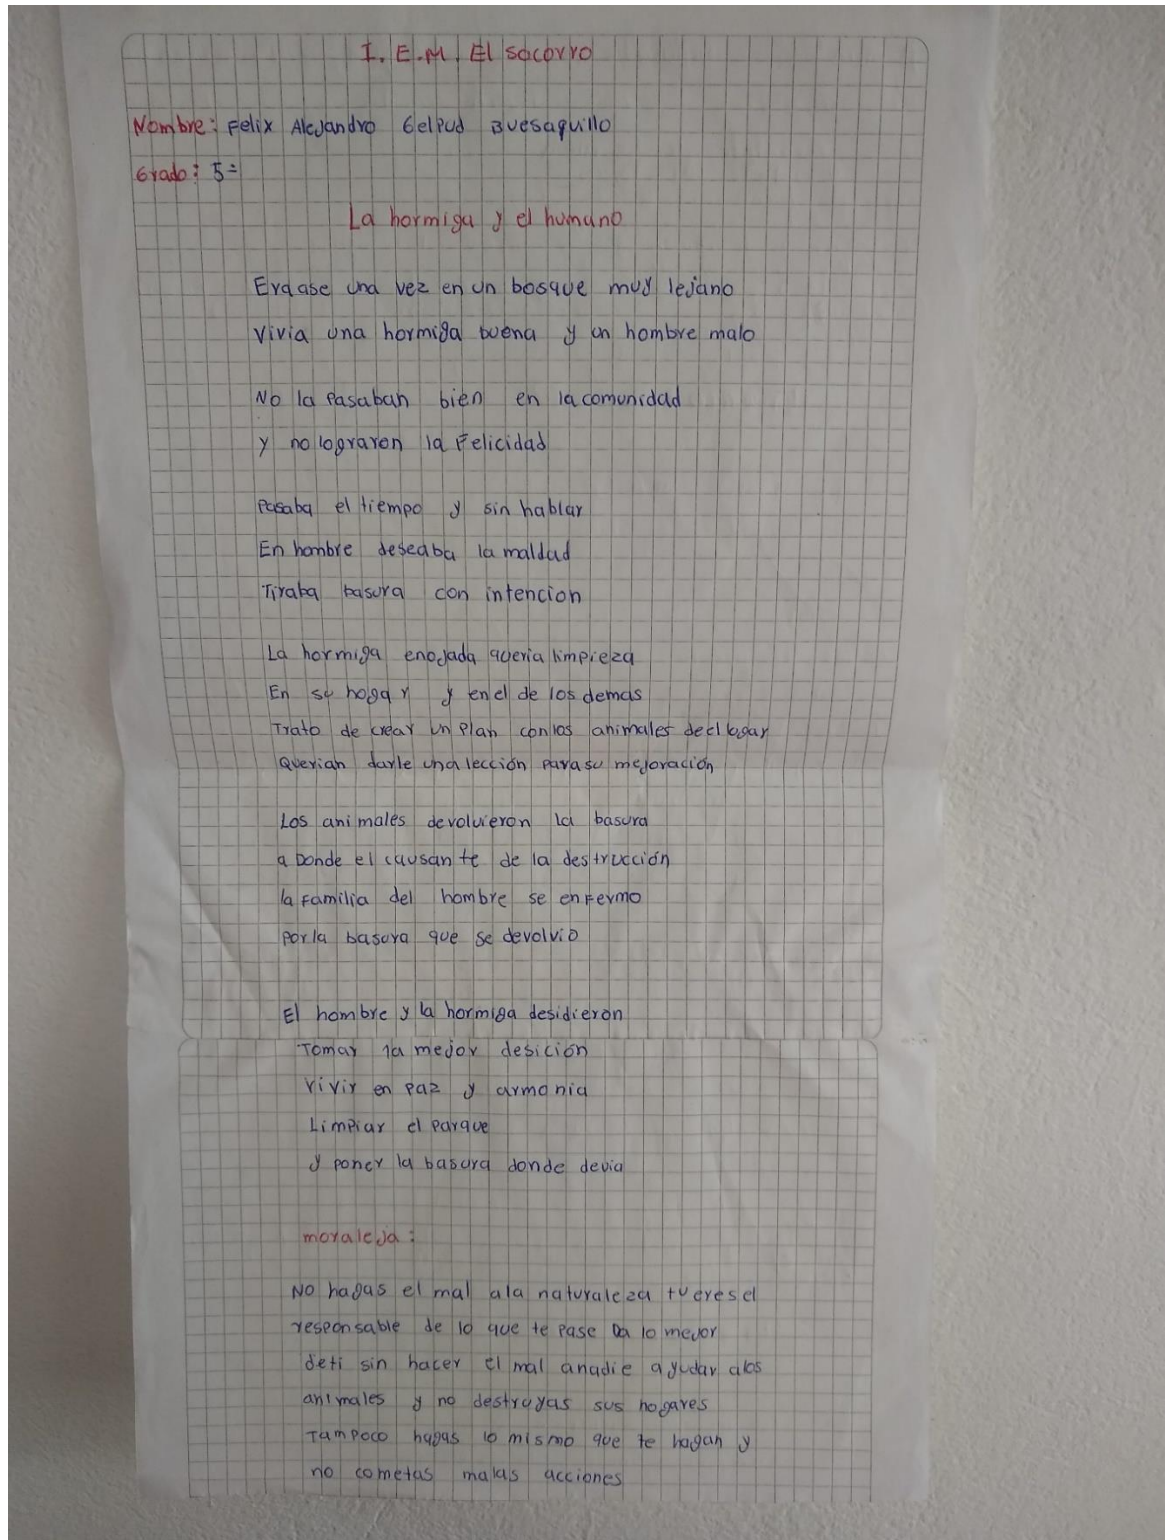 I. E.M. El socorro
Nombre: Felix Alejandro Gelpud Buesaquillo
Grado: 5=
La hormiga y el humano
Erqase una vez en un bosque muy lejano
Vivia una hormiga buena y un hombre malo
No la Pasaban bien en la comunidad
y no lograron la Felicidad
Pasaba el tiempo y sin hablar
En hombre deseaba la maldad
Tiraba basura con intencion
La hormiga enojada queria limpieza
En su hogar y en el de los demas
Trato de crear un Plan con los animales deel logar
Querian darle una lección para su mejoración
Los animales devolvieron la basura
a Donde el causante de la destrucción
la Familia del hombre se enFermo
Por la basura que se devolvio
El hombre y la hormiga desidieron
Tomar la mejor desición
Vivir en Paz y armonia
Limpiar el Parque
y poner la basura donde devia
moraleja:
No hagas el mal ala naturaleza tu eres el
responsable de lo que te pase Da lo mejor
deti sin hacer el mal anadie ayudar alos
animales y no destruyas sus hogares
Tampoco hagas lo mismo que te hagan y
no cometas malas acciones